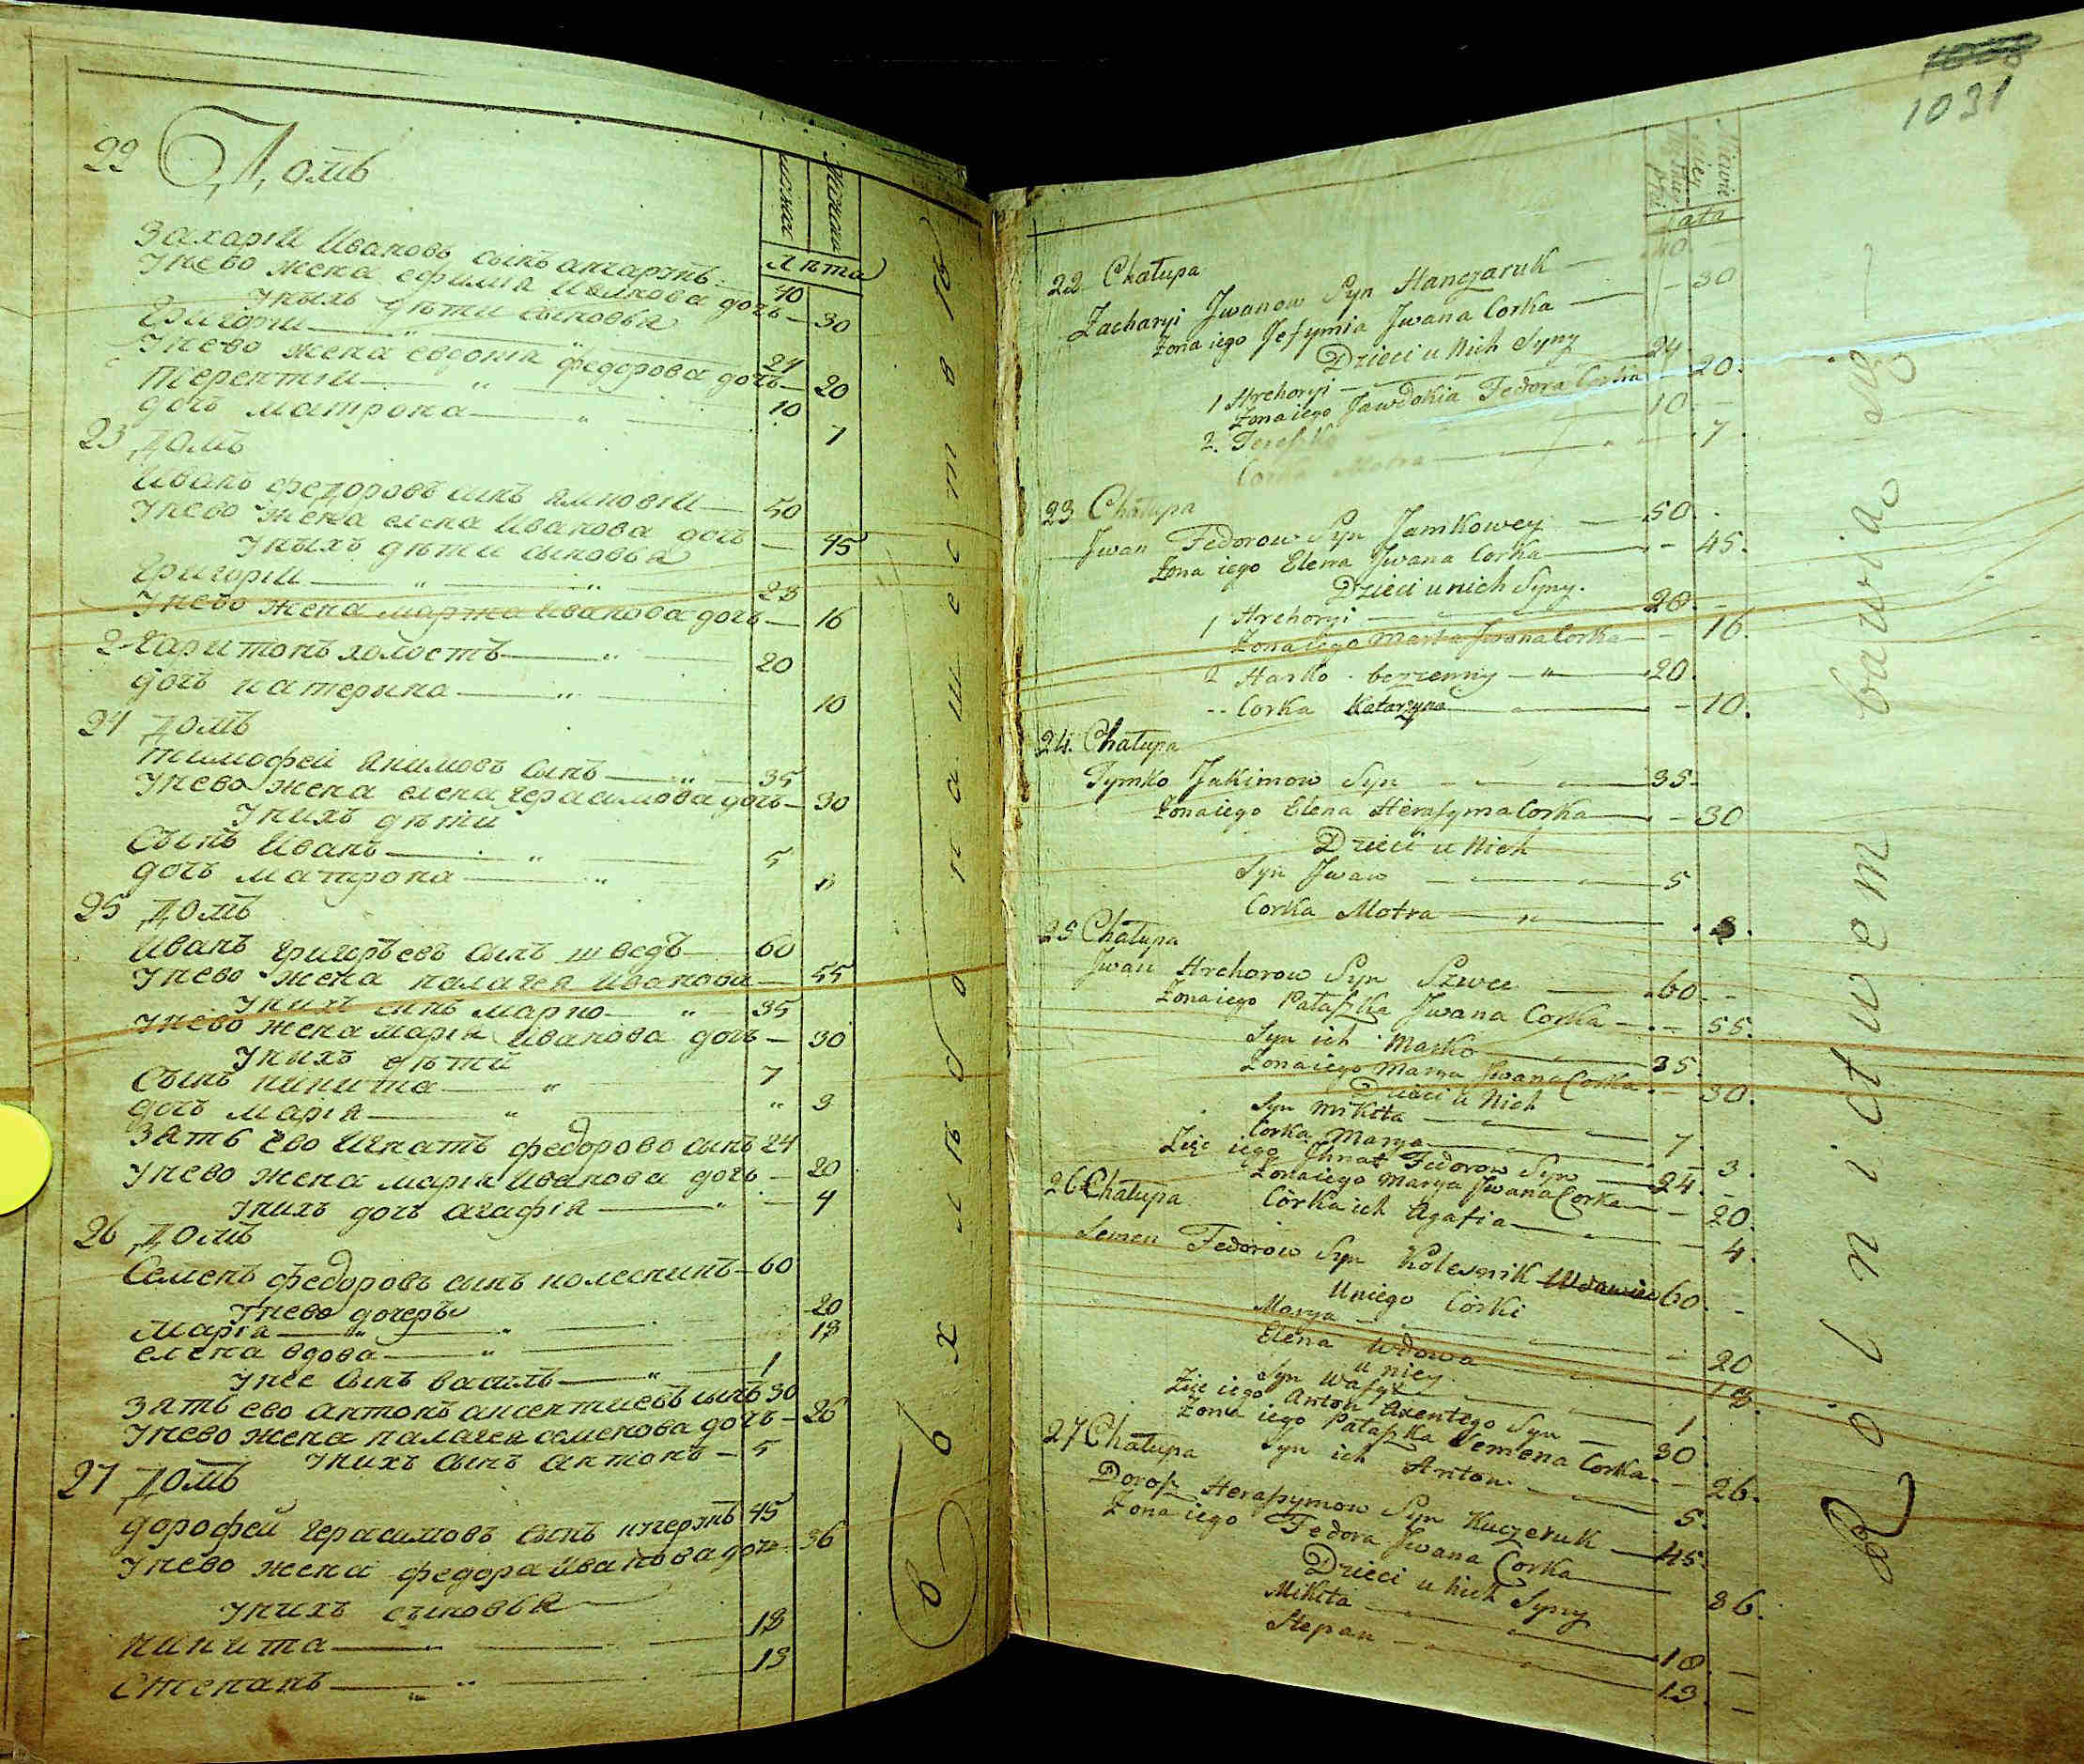 22 Домъ
мужск
женск
лѣта
Захарій Ивановъ сынъ анчарукъ 40
У нево жена ефимия Иванова дочь — 30
У ныхъ дѣти сыновья
Григорій — " — 24
У нево жена евдокия федорова дочь — 20
терентій — " — 10
дочь матрона — " — 7
23 Домъ
Иванъ федоровъ сынъ ямковій — 50
У нево жена елена Иванова дочь — 45
У ныхъ дѣти сыновья
Григорій — " — " — 28
У нево жена марта Иванова дочь — 16
2 Харитонъ холостъ — " — 20
дочь катерина — " — 10
24 Домъ
тимофей Якимовъ сынъ — " — 35
У нево жена елена Герасимова дочь — 30
У нихъ дѣти
Сынъ Иванъ — " — 5
дочь матрона — " — 3
25 Домъ
Иванъ Григорьевъ сынъ шведъ — 60
У нево жена палагея Иванова — 55
У нихъ сынъ марко — " — 35
У нево жена мария Иванова дочь — 30
У ныхъ дѣти
Сынъ никита — " — 7
дочь марія — " — " 3
Зять ево Игнатъ федорово сынъ 24
У нево жена мария Иванова дочь — 20
У нихъ дочь агафія — " — 4
26 Домъ
Семенъ федоровъ сынъ колесникъ — 60
У нево дочеры
Марія — " — " — 20
елена вдова — " — 18
У нее сынъ василь — " — 1
Зять ево антонъ аксентиевъ сынъ 30
У нево жена палагея семенова дочь — 26
У нихъ сынъ антонъ — 5
27 Домъ
дорофей Герасимовъ сынъ кучерукъ 45
У нево жена федора Иванова дочь 36
У нихъ сыновья
никита — " — 18
Степанъ — " — 13
въ хлѣбопашествѣ
1031
Lata
22 Chałupa
Zacharyi Jwanow Syn Hanczaruk — 40 —
Zona iego Jefymia Jwana Corka — — 30
Dzieci u Nich Syny
1 Hrehoryi — 24
Zona iego Jawdokia Fedora Corka — 20.
2. Tereszko — 10
Corka Motra — 7.
23 Chałupa
Jwan Fedorow Syn Jamkowey — 50.
Zona iego Elena Jwana Corka — — 45.
Dzieci u nich Syny.
1 Hrehoryi — 28. —
Zona iego Marta Jwana Corka — — 16.
2 Harko bezzenny — " — 20.
-- Corka Katarzyna — — 10.
24. Chałupa
Tymko Jakimow Syn — 35 —
Zona iego Elena Herasyma Corka — — 30
Dzieci u Nich
Syn Jwan — 5
Corka Motra — " — 3.
25 Chałupa
Jwan Hrehorow Syn Szwec — 60. —
Zona iego Pałaszka Jwana Corka — — 55.
Syn ich Marko — 35.
Zona iego Marya Jwana Corka — 30.
Dzieci u Nich
Syn Mikita — 7.
Corka Marya — 3.
Zięc iego Jhnat Fedorow Syn — 24. —
Zona iego Marya Jwana Corka — — 20.
Córka ich Agafia — 4.
26 Chałupa
Semen Fedorow Syn Kolesnik Wdowiec 60. —
U niego Córki
Marya — 20
Elena Wdowa — 18.
u niey
Syn Wasyl — 1.
Zięc iego Anton Axentego Syn — 30.
Zona iego Pałaszka Semena Corka — 26.
Syn ich Anton — 5.
27 Chałupa
Dorosz Herasymow Syn Kuczeruk — 45.
Zona iego Fedora Jwana Corka — 36.
Dzieci u Nich Syny
Mikita — 18. —
Stepan — 13. —
Rolnictwem bawią się —